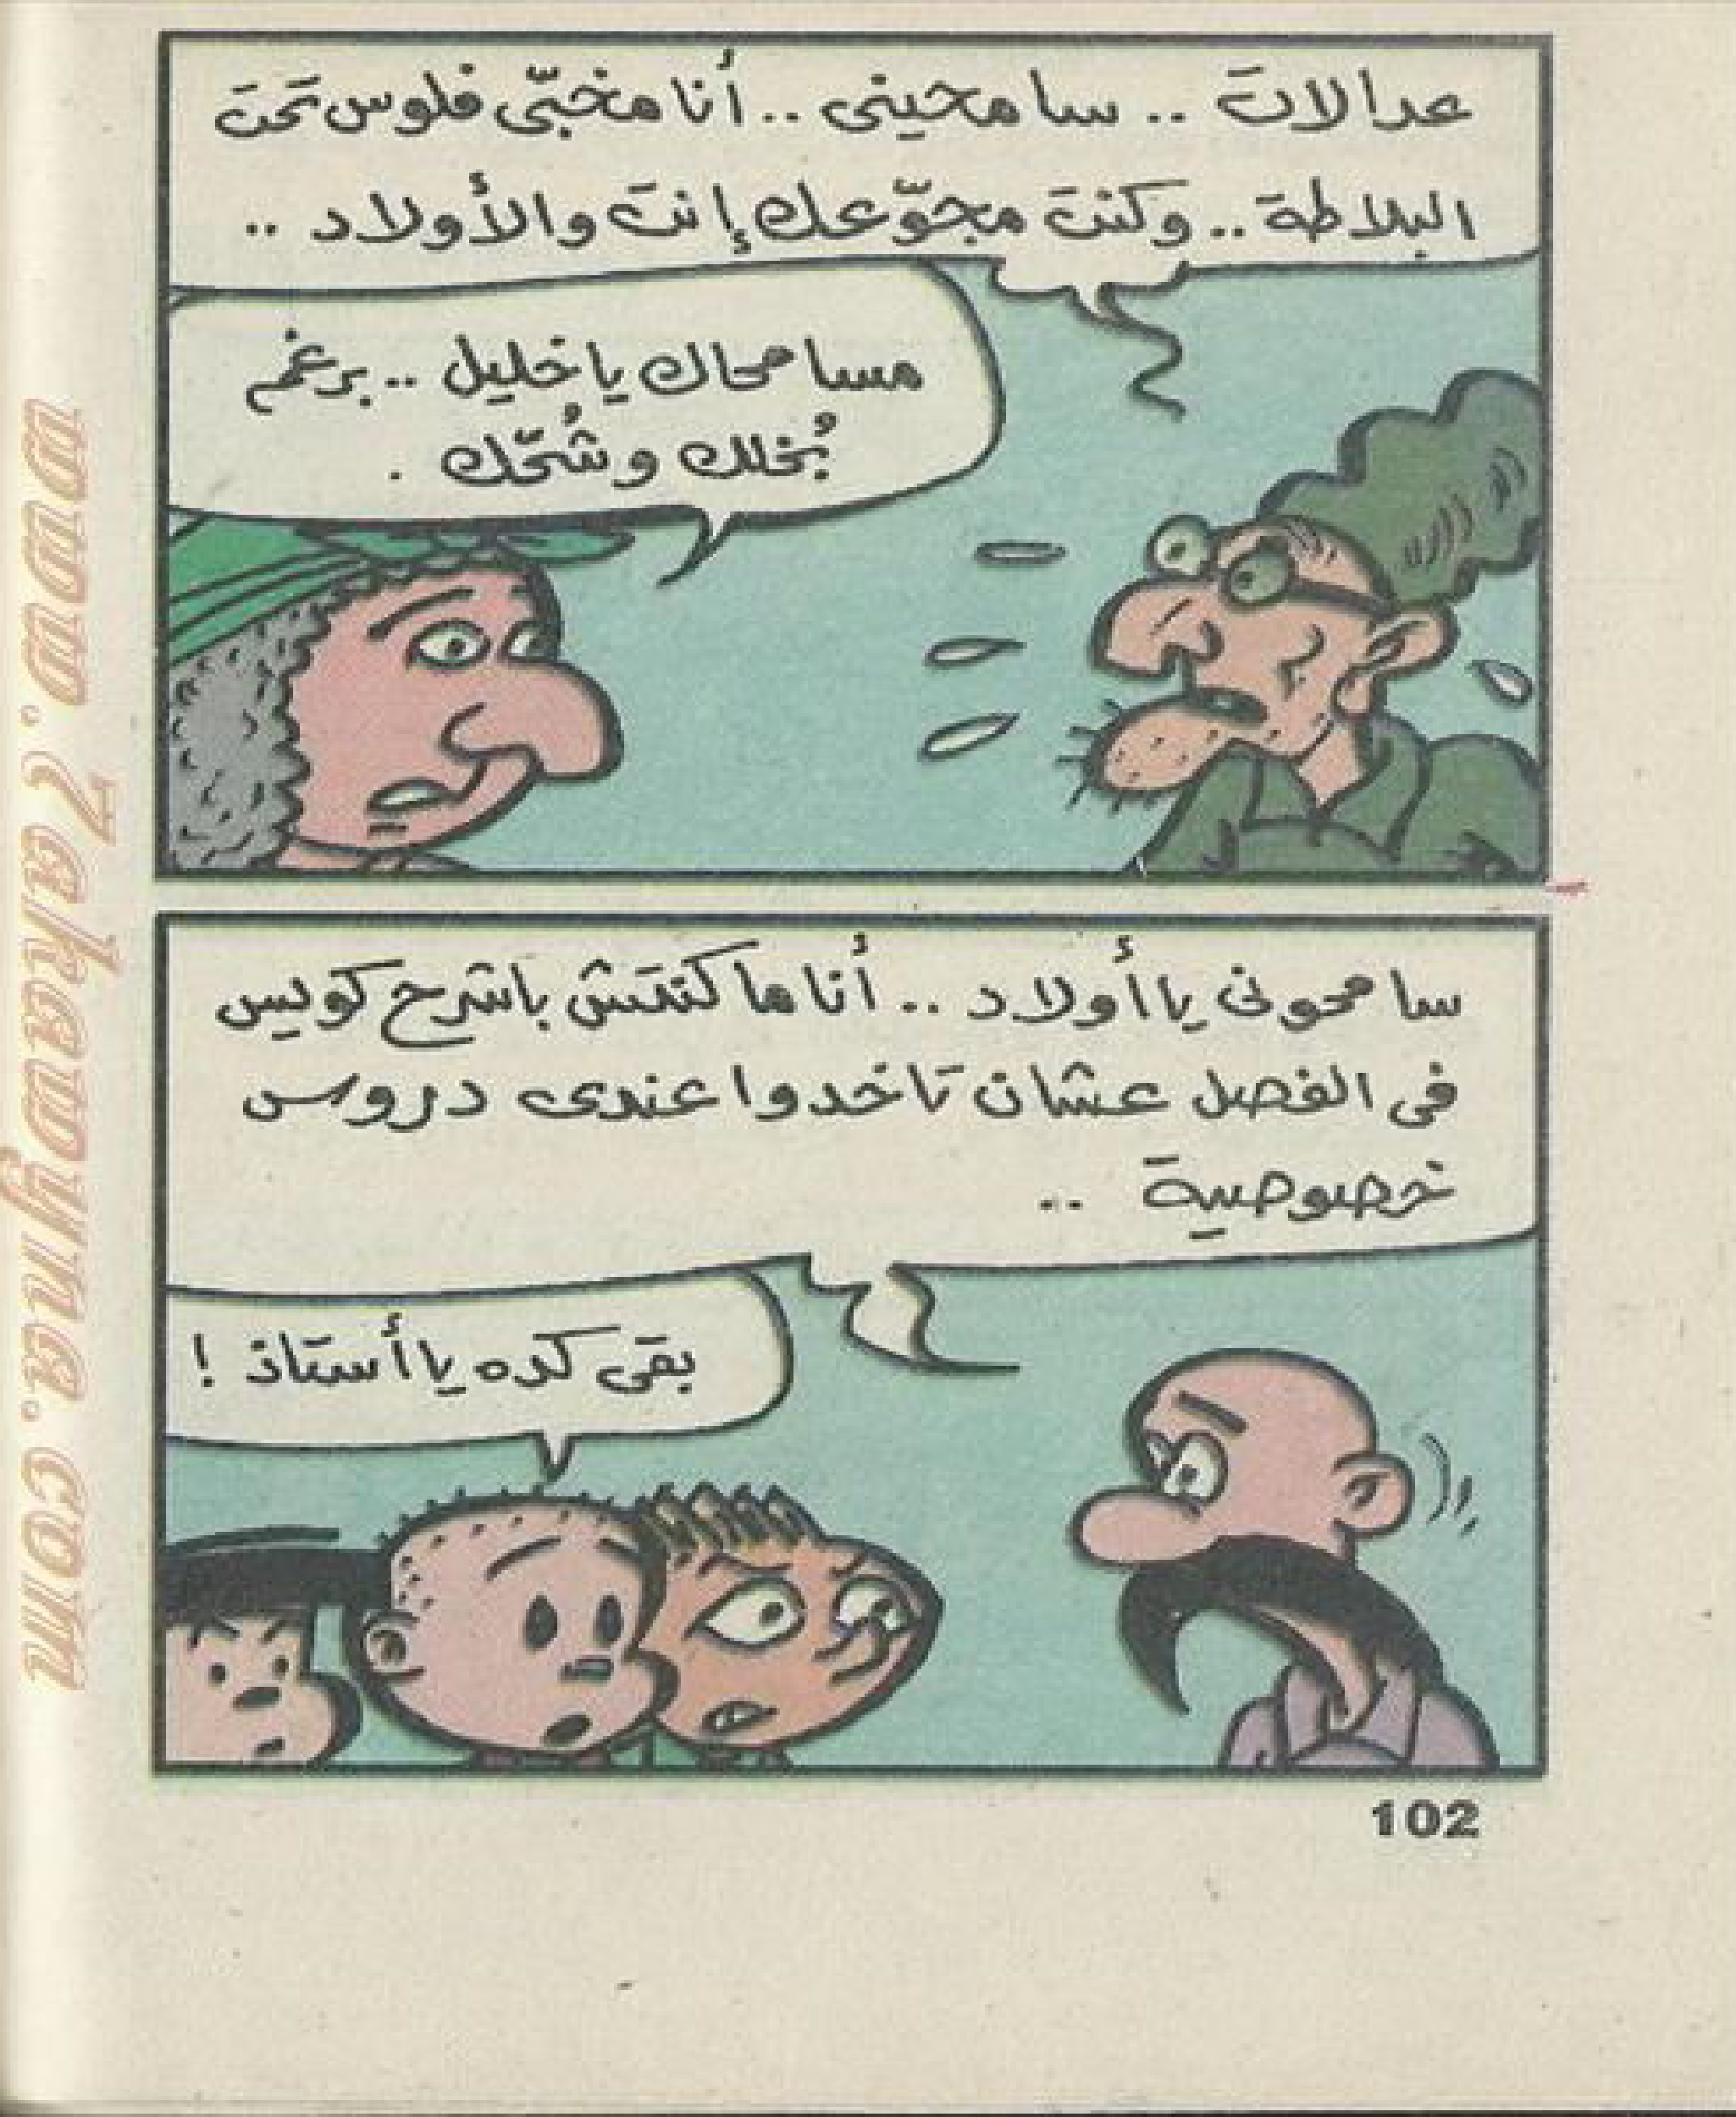 عدالات .. سامحينى .. أنا مخبّى فلوس تحت
البلاطة .. وكنت مجوّعك إنت والأولاد ..
مسامحاك يا خليل .. برغم
بُخلك وشُحّك .
سامحونى يا أولاد .. أنا ما كنتش باشرح كويس
فى الفصل عشان تاخدوا عندى دروس
خصوصية ..
بقى كده يا أستاذ !
102